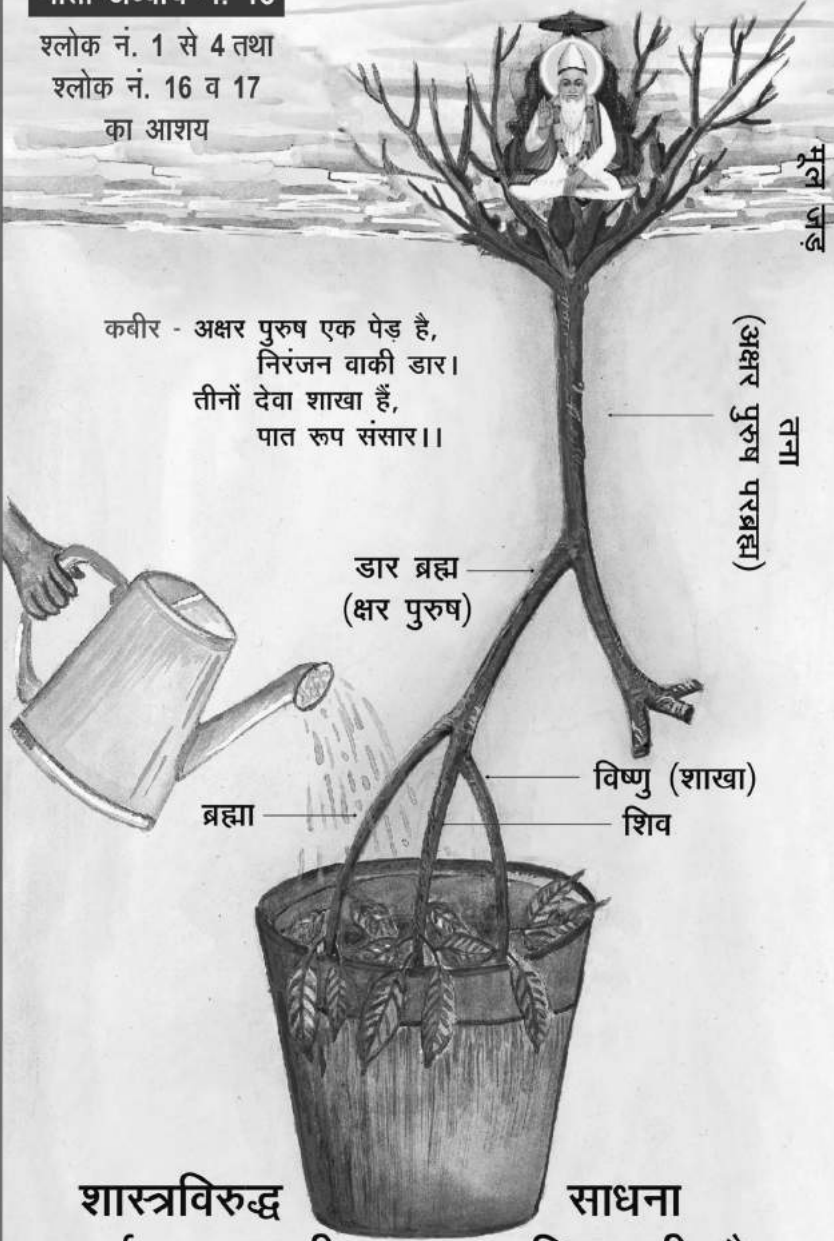 श्लोक नं. 1 से 4 तथा
श्लोक नं. 16 व 17
का आशय
मूल जड़
कबीर - अक्षर पुरुष एक पेड़ है,
निरंजन वाकी डार।
तीनों देवा शाखा हैं,
पात रूप संसार।।
तना
(अक्षर पुरुष परब्रह्म)
डार ब्रह्म
(क्षर पुरुष)
विष्णु (शाखा)
ब्रह्मा
शिव
शास्त्रविरुद्ध साधना